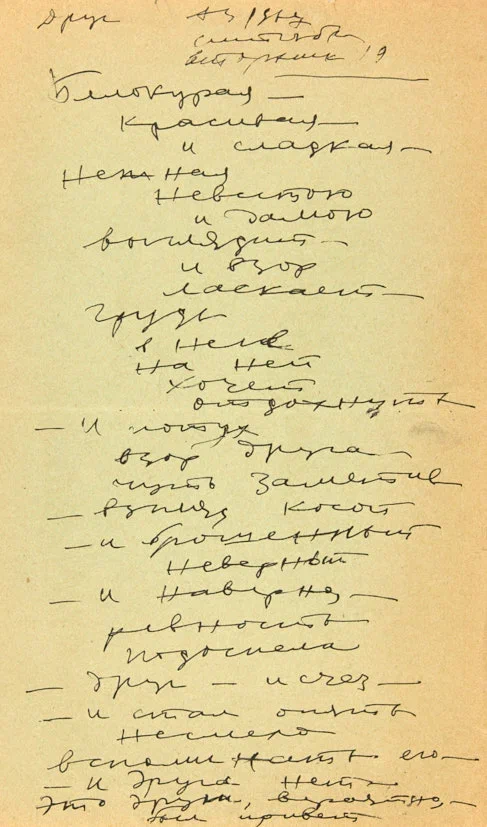 Друг
сентябрь
вторник 19
Белокурая —
красивая —
и сладкая —
Нежная
Невестою
и дамою
выглядит —
и взор
ласкает —
грудь
в
на ней
хочет
отдохнуть
— И потух
взор друга —
чуть заметив
— взгляд косой
— и брошенный
неверный
— и наверно —
ревность
подоспела
— друг — исчез —
— и стал опять
несмело
вспоминать его —
— и друга нет
Это друзья, вероятно, —
привет